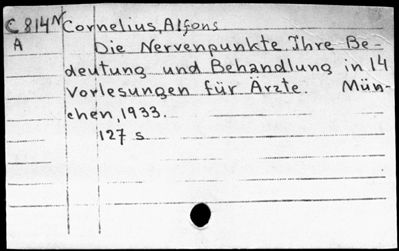 C 814N Cornelius, Alfons
A Die Nervenpunkte. Ihre Be-
deutung und Behandlung in 14
Vorlesungen für Ärzte. Mün-
chen, 1933.
127 s